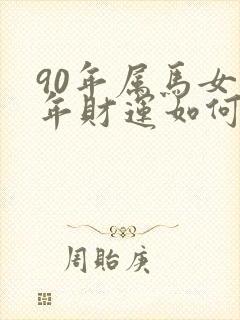 90年属馬女
年財運如何
周貽庚